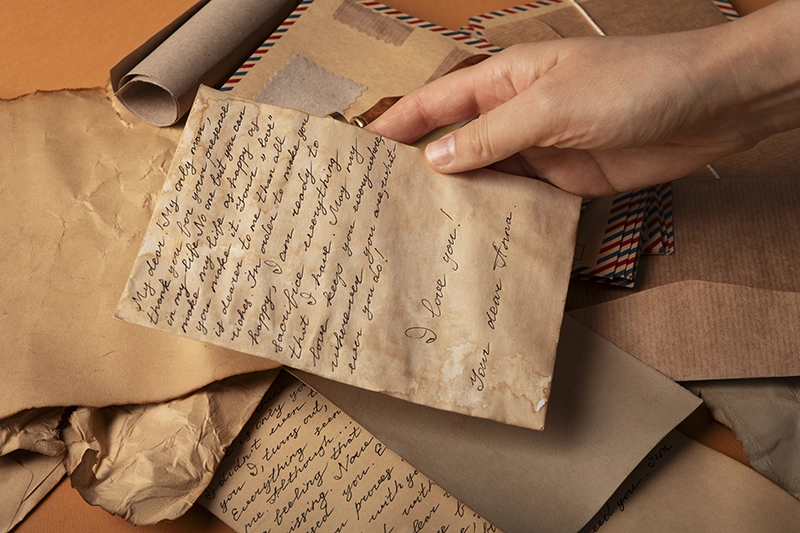 My dear! My only man,
thank you for your presence
in my life. No one but you can
make my life as happy as
you make it. Your "love"
is dearer to me than all
In order to make you
happy, I am ready to
sacrifice everything
that I have. May my
love keeps you everywhere
wherever you are, what-
ever you do!
I love you!
Your dear Anna.
is only you
didn't even
you I, turns out,
Everything
me. Although...
feeling that
you. E
process
with you
with
need you. I'm